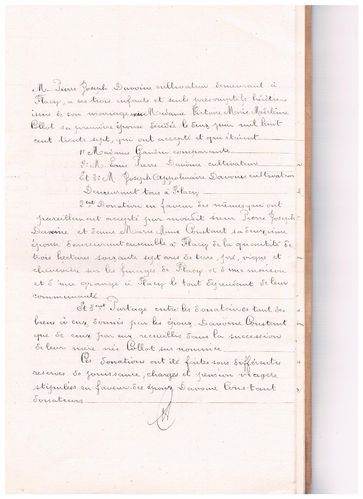 M. Pierre Joseph Davoine cultivateur demeurant à
Flacy, a ses trois enfants et seuls présomptifs héritiers
issus de son mariage avec Madame Victoire Marie Madeleine
Collot sa première épouse décédée le deux juin mil huit
cent trente sept, qui ont accepté et qui étaient
1° Madame Gaudin comparante
2° M. Davoine cultivateur
Et 3° M. Joseph Appolinaire Davoine cultivateur
Demeurant tous à Flacy
2ent Donation en faveur des mêmes qui ont
pareillement accepté par mondit sieur Pierre Joseph
Davoine et dame Marie Anne Constant sa deuxième
épouse demeurant ensemble à Flacy de la quantité de
trois hectares soixante sept ares de terre, pré, vigne et
chenevière sur les finages de Flacy et d'une maison
et d'une grange à Flacy le tout dépendant de leur
communauté
Et 3ent Partage entre les donataires tant des
biens à eux donnés par les époux Davoine Constant
que de ceux par eux recueillis dans la succession
de leur mère née Collot sus nommée
Ces donations ont été faites sous différentes
réserves de jouissance, charges et pension viagère
stipulées en faveur des époux Davoine Constant
donateurs